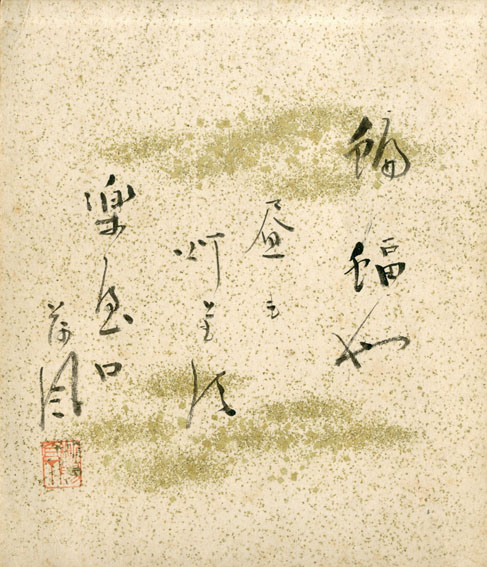 蝙蝠や
昼も
灯ともす
楽屋口
荷風